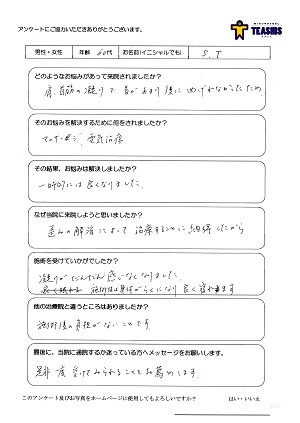 アンケートにご協力いただきありがとうございます。
TEASHIS
男性・女性 年齢 60代 お名前(イニシャルでも) S. T
どのようなお悩みがあって来院されましたか?
肩、首筋の凝りで、首があまり後にまげれなかったため
そのお悩みを解決するために何をされましたか?
マッサージ、電気治療
その結果、お悩みは解決しましたか?
一時的には良くなりました。
なぜ当院に来院しようと思いましたか?
歪みの解消によって治療することに納得したから
施術を受けていかがでしたか?
凝りがだんだん感じなくなりました。
施術後は身体がらくになり良く寝れます
他の治療院と違うところはありましたか?
施術後の負担がないことです。
最後に、当院に通院するか迷っている方へメッセージをお願いします。
是非一度受けてみられることをお薦めします。
このアンケート及びお写真をホームページに使用してもよろしいですか? はい・いいえ